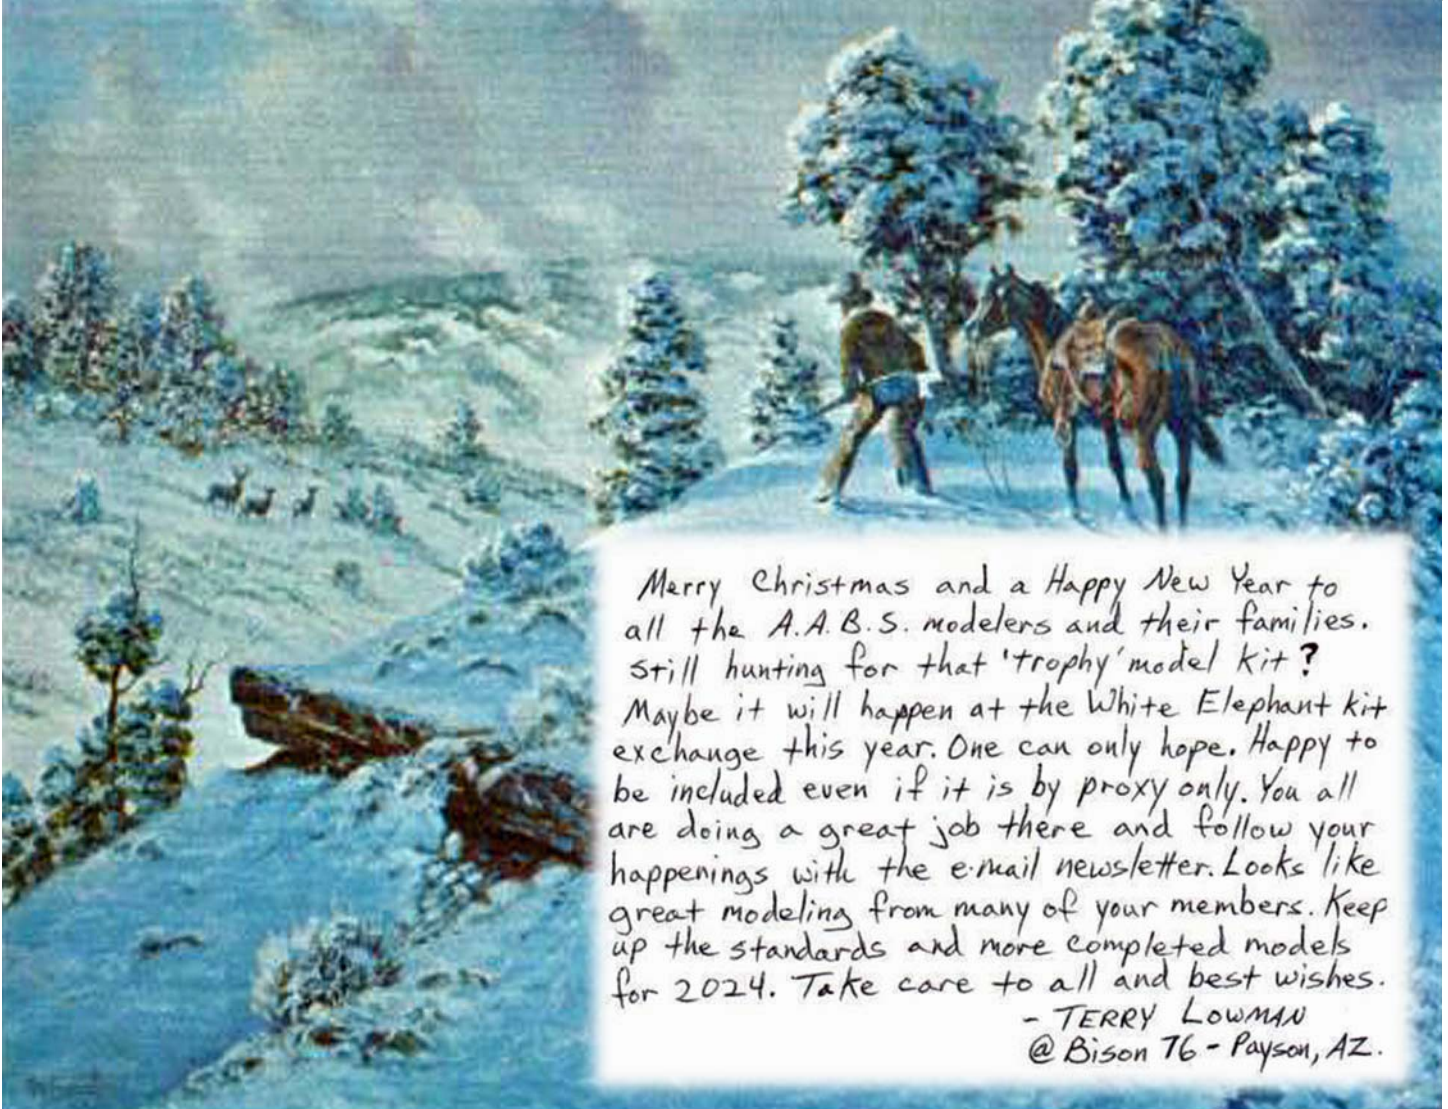 Merry Christmas and a Happy New Year to
all the A.A.B.S. modelers and their families.
Still hunting for that 'trophy' model kit?
Maybe it will happen at the White Elephant kit
exchange this year. One can only hope. Happy to
be included even if it is by proxy only. You all
are doing a great job there and follow your
happenings with the e-mail newsletter. Looks like
great modeling from many of your members. Keep
up the standards and more completed models
for 2024. Take care to all and best wishes.
- TERRY LOWMAN
@ Bison 76 - Payson, AZ.